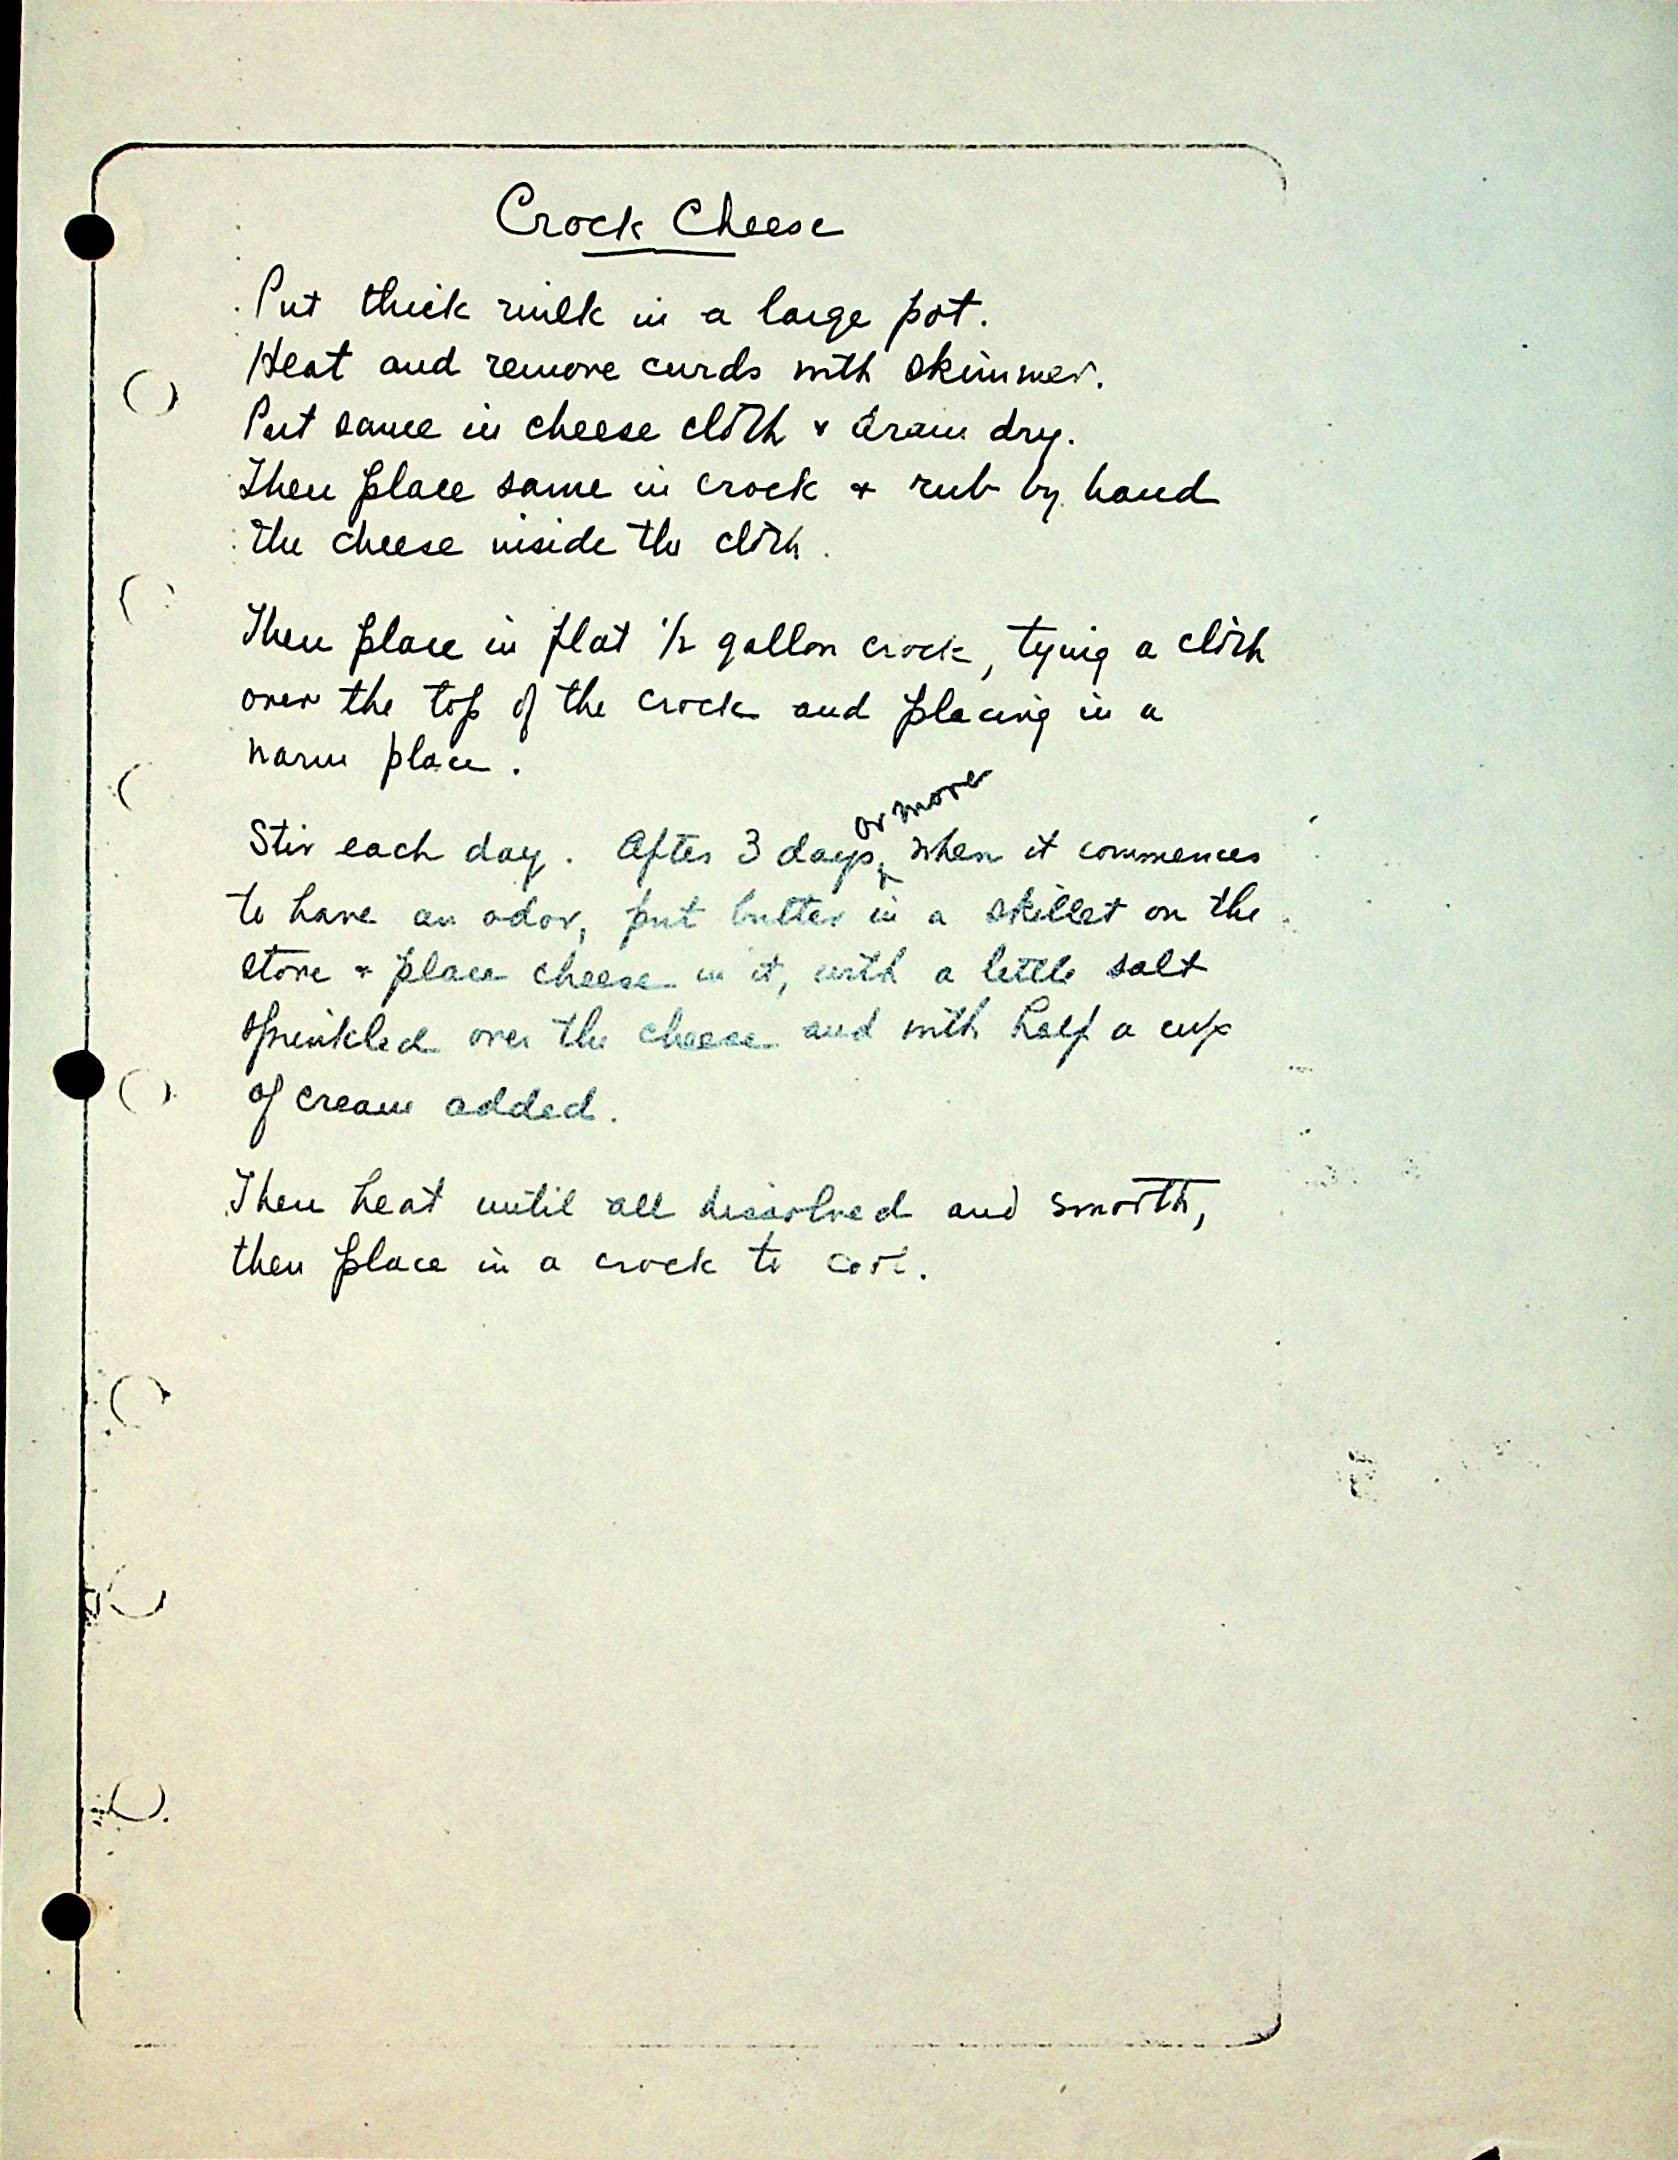 Crock Cheese
Put thick milk in a large pot.
Heat and remove curds with skimmer.
Put same in cheese cloth & drain dry.
Then place same in crock & rub by hand
the cheese inside the cloth.
Then place in flat 1/2 gallon crock, tying a cloth
over the top of the crock and placing in a
warm place.
or more
Stir each day. After 3 days, when it commences
to have an odor, put butter in a skillet on the
stove & place cheese in it, with a little salt
sprinkled over the cheese and with half a cup
of cream added.
Then heat until all dissolved and smooth,
then place in a crock to cool.